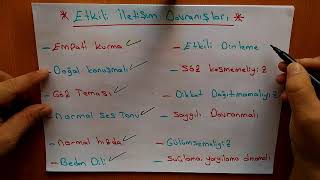 * Etkili İletişim Davranışları *
- Empati kurma ✓
- Doğal konuşmalı ✓
- Göz Teması ✓
- Normal Ses Tonu ✓
- Normal hızda ✓
- Beden Dili ✓
- Etkili Dinleme
- Söz kesmemeliyiz
- Dikkat Dağıtmamalıyız
- Saygılı Davranmalı
- Gülümsemeliyiz
- Suçlama, yargılama olmamalı